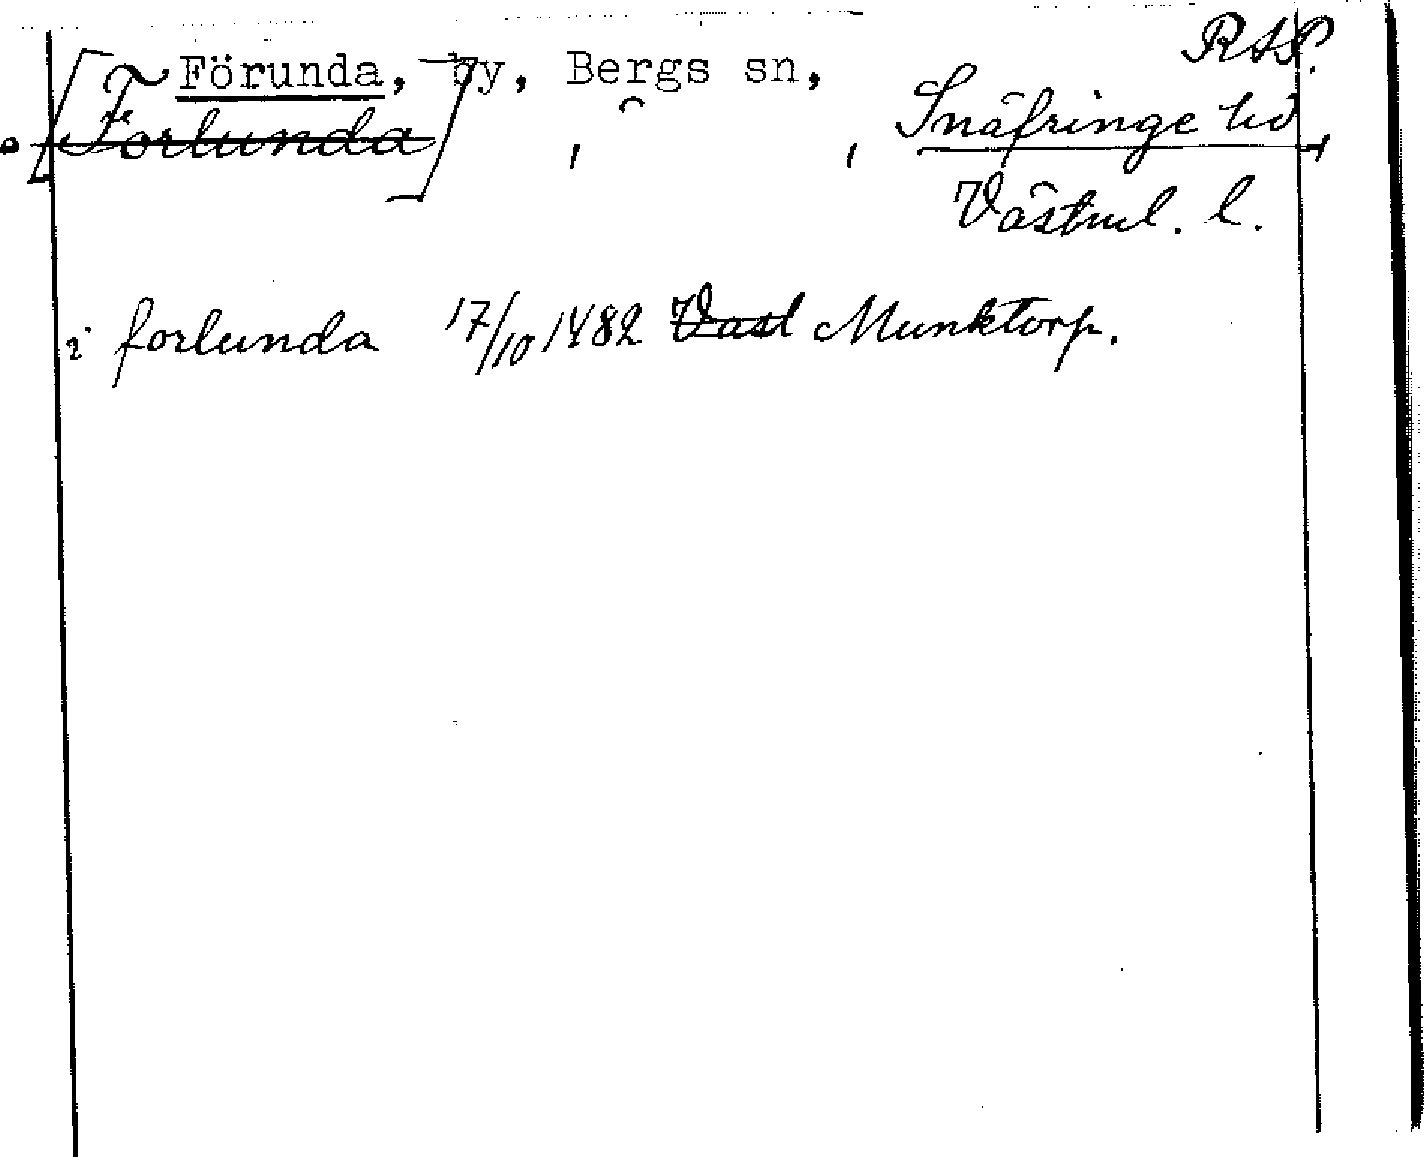 RAP.
Förunda, by, Bergs sn,
Forlunda , , Snäfringe hd
Västml. l.
i forlunda 17/10 1482 Vast Munktorp.